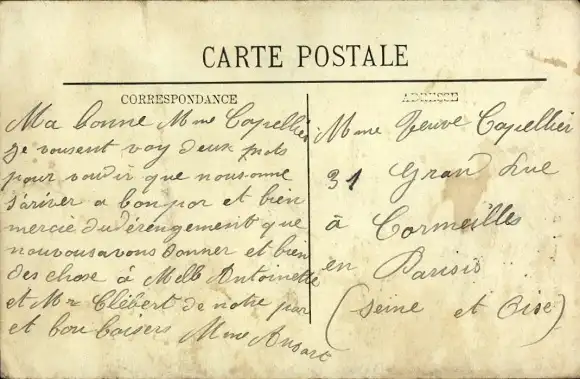 CARTE POSTALE
CORRESPONDANCE
ADRESSE
Ma bonne Mme Capellier
Je vousent voy deux mots
pour voudir que nousonne
s'ariver a bon por et bien
mercie du dérengement que
nouvousavons donner et bien
des chose à Melle Antoinette
et Mr Clébert de notre par
et bon baisers Mme Ansart
Mme Veuve Capellier
31 Grand Rue
à Cormeilles
en Parisis
(Seine et Oise)